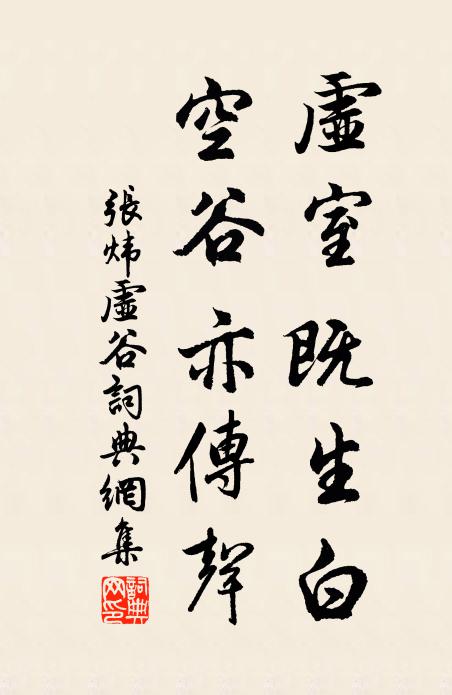 虛室既生白
空谷亦傳聲
張煒虛谷詞典網集
詞典網印